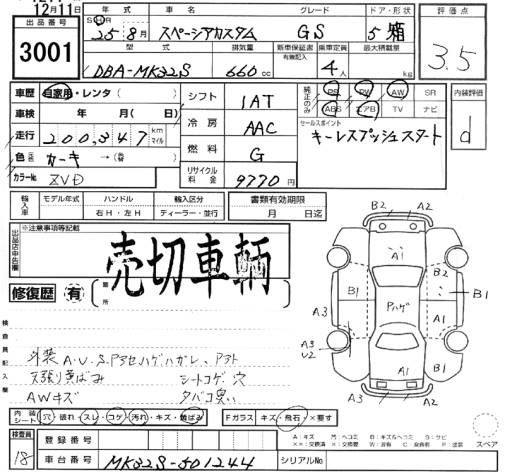 12月11日
出品番号
3001
年式 車名 グレード ドア・形状 評価点
S H R
25年8月 スペーシアカスタム GS 5 箱 3.5
型式 排気量 新車保証書 乗車定員 最大積載量
有無記入
DBA-MK32S 660cc 4人 kg
車歴 自家用・レンタ( ) シフト 1AT 純正のみ PS PW AW SR 内装評価
車検 年 月(日) ABS エアB TV ナビ
走行 200,347 km マイル 冷房 AAC セールスポイント d
キーレスプッシュスタート
色 カーキ →(替) 燃料 G
カラーNo ZVD リサイクル料金 9770円
輸入車 モデル年式 ハンドル 輸入区分 書類有効期限
右H・左H ディーラー・並行 月 日迄
出品店申告欄 ※注意事項等記載
売切車輌
修復歴 有 箇所
検査員記入欄
外装A.U.S.Pアセハゲハガレ、Pアト
天張り黄ばみ シートコゲ穴
AWキズ タバコ臭い
内装シート 穴・破れ・スレ・コゲ・汚れ・キズ・黄ばみ Fガラス キズ・飛石・×要す
検査員
18
登録番号
車台番号 MK32S-501244 シリアルNo
B2 A2
A1
A3 B2
B1 Pハゲ B1
A3 A1
U2
A1
A2
A3
スペア
A:キズ P:ヘコミ B:キズ&ヘコミ S:サビ